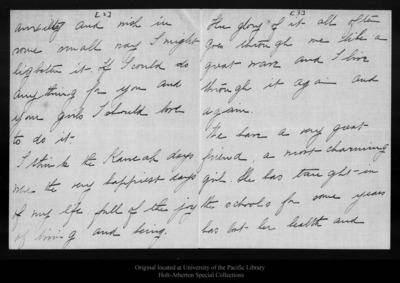 [2]
anxiety and wish in
some small way I might
lighten it. If I could do
any thing for you and
your girls I should love
to do it.
I think the Kaweah days
were the very happiest days
of my life, full of the joy
of living and being.
[3]
The glory of it all often
goes through me like a
great wave and I live
through it again and
again.
We have a very great
friend, a most charming
girl. She has taught in
the schools for some years
has lost her health and
Original located at University of the Pacific Library
Holt-Atherton Special Collections